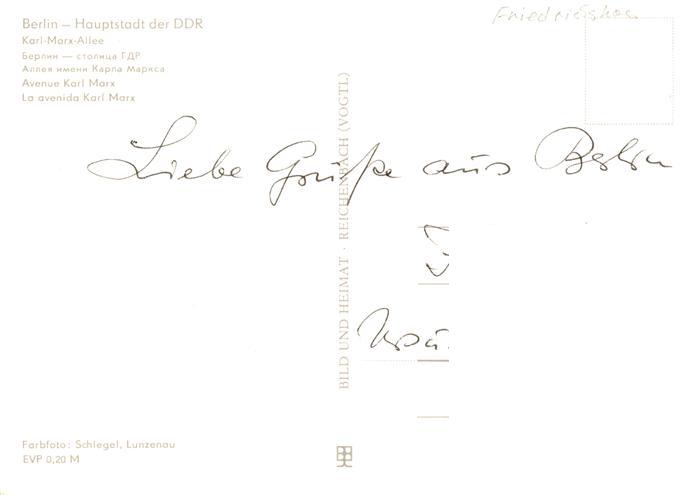 Berlin – Hauptstadt der DDR
Karl-Marx-Allee
Берлин — столица ГДР
Аллея имени Карла Маркса
Avenue Karl Marx
La avenida Karl Marx
Liebe Grüße aus Berlin
BILD UND HEIMAT · REICHENBACH (VOGTL)
Farbfoto: Schlegel, Lunzenau
EVP 0,20 M